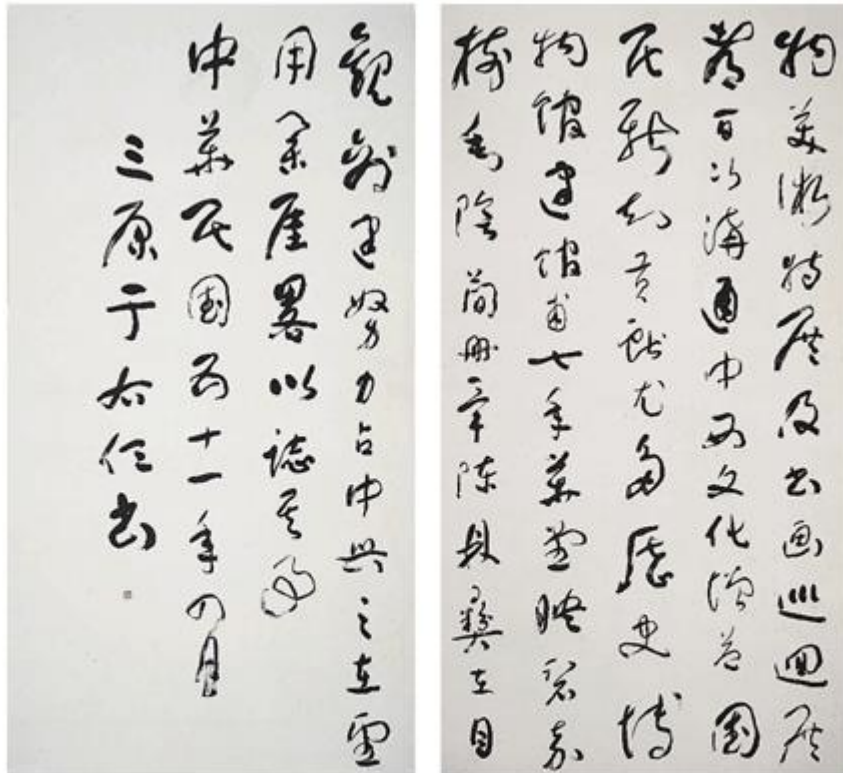 物美術特展及書画巡迴展
皆以溝通中西文化增益國
民新知貢獻尤多歷史博
物館建館甫七年華堂映碧嘉
樹垂陰簡冊罕陳鼎彝在目
觀創建努力占中興之在望
用厓畧以誌其
中華民國五十一年四月
三原于右任書